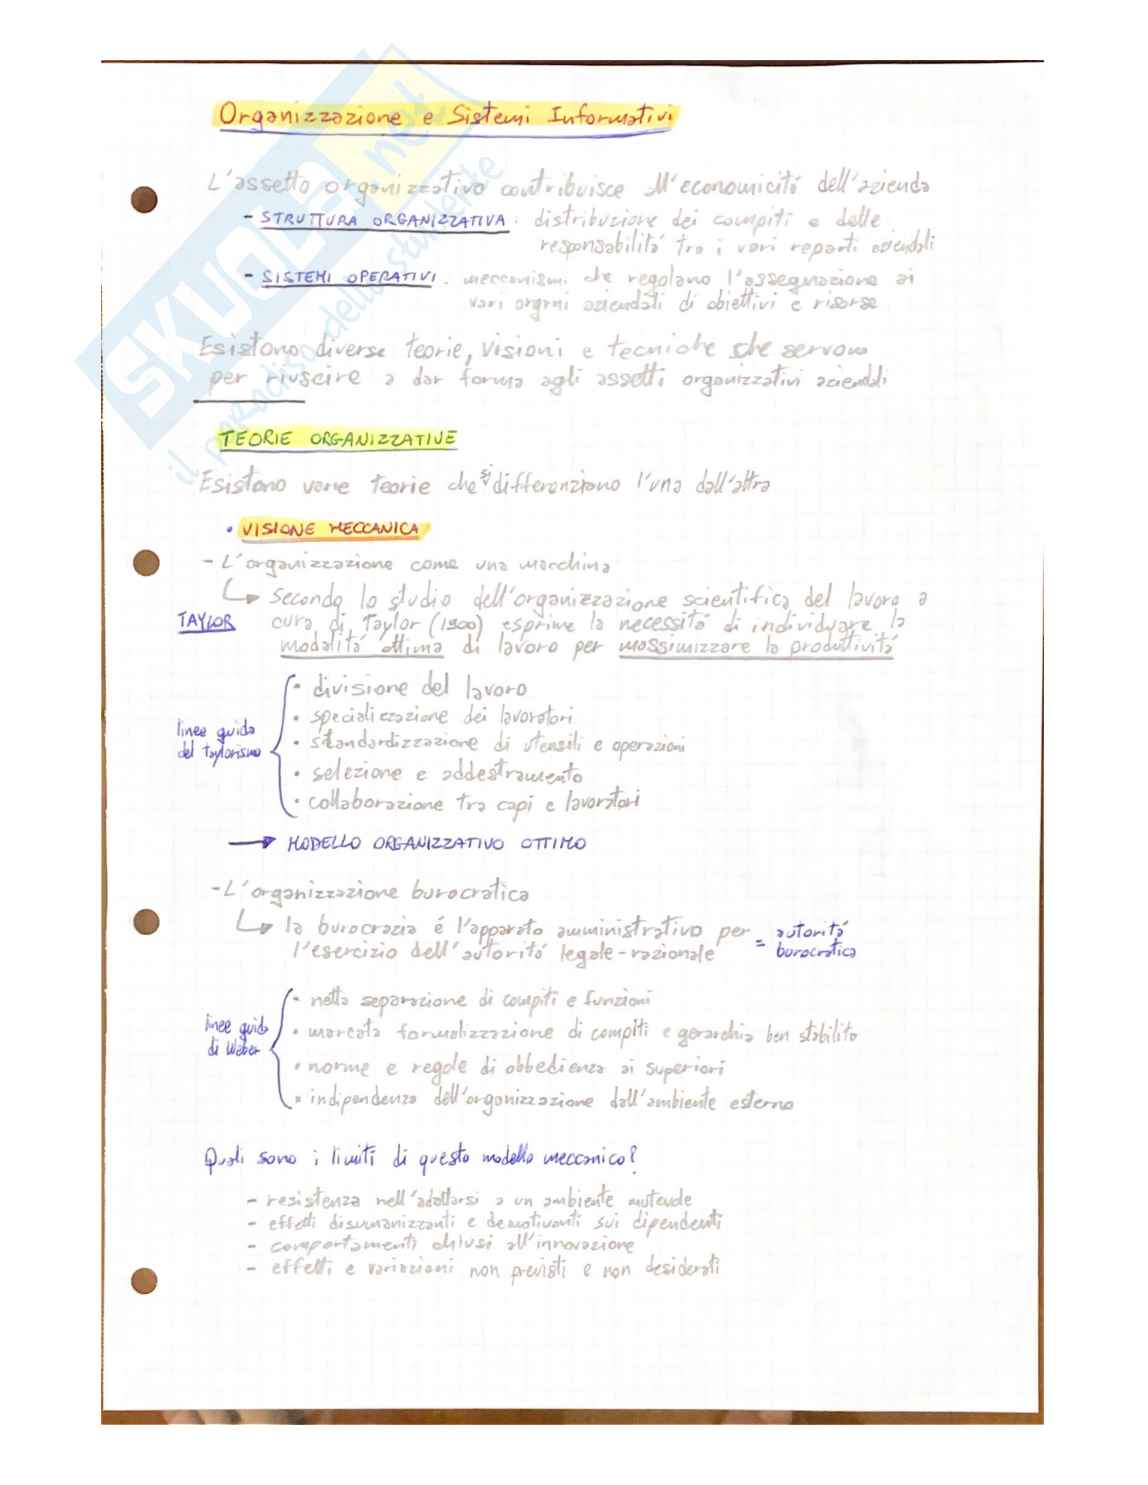 Organizzazione e Sistemi Informativi
L'assetto organizzativo contribuisce all'economicitá dell'azienda
- STRUTTURA ORGANIZZATIVA : distribuzione dei compiti e delle
responsabilitá tra i vari reparti aziendali
- SISTEMI OPERATIVI : meccanismi che regolano l'assegnazione ai
vari organi aziendali di obiettivi e risorse
Esistono diverse teorie, visioni e tecniche che servono
per riuscire a dar forma agli assetti organizzativi aziendali
TEORIE ORGANIZZATIVE
Esistono varie teorie che si differenziano l'una dall'altra
• VISIONE MECCANICA
- L'organizzazione come una macchina
↳ Secondo lo studio dell'organizzazione scientifica del lavoro a
TAYLOR cura di Taylor (1900) esprime la necessitá di individuare la
modalitá ottima di lavoro per massimizzare la produttivitá
linee guida
del taylorismo
• divisione del lavoro
• specializzazione dei lavoratori
• standardizzazione di utensili e operazioni
• selezione e addestramento
• collaborazione tra capi e lavoratori
→ MODELLO ORGANIZZATIVO OTTIMO
- L'organizzazione burocratica
↳ la burocrazia é l'apparato amministrativo per
l'esercizio dell'autoritá legale-razionale
= autoritá
burocratica
linee guida
di Weber
• netta separazione di compiti e funzioni
• marcata formalizzazione di compiti e gerarchia ben stabilita
• norme e regole di obbedienza ai superiori
• indipendenza dell'organizzazione dall'ambiente esterno
Quali sono i limiti di questo modello meccanico?
- resistenza nell'adattarsi a un ambiente mutevole
- effetti disumanizzanti e demotivanti sui dipendenti
- comportamenti chiusi all'innovazione
- effetti e variazioni non previsti e non desiderati
SKUOLA.net
il paradiso dello studente